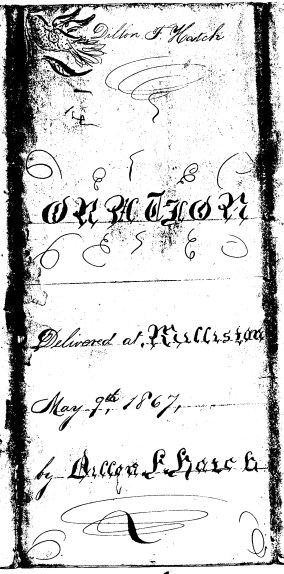 Dillon F. Hatch
ORATION
Delivered at Williston
May 9th, 1867,
by Dillon F. Hatch